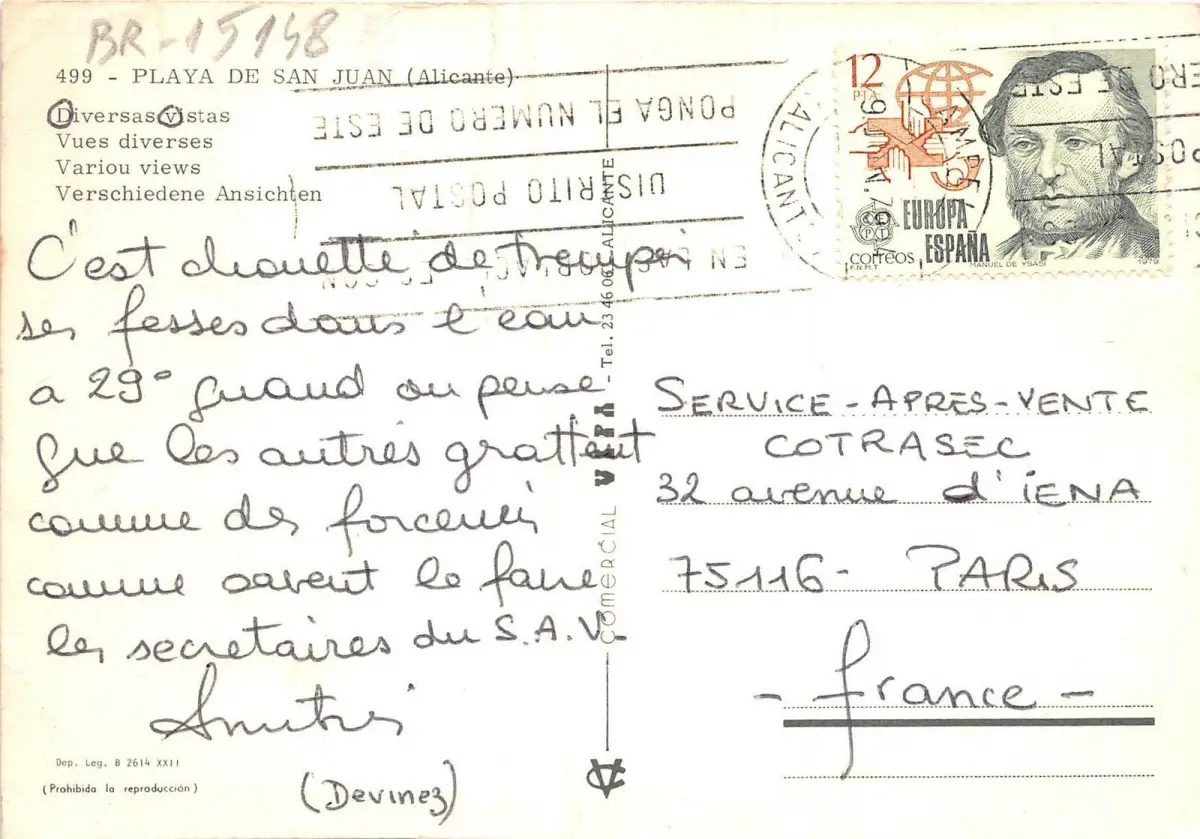 BR-15148
499 - PLAYA DE SAN JUAN (Alicante)
Diversas vistas
Vues diverses
Variou views
Verschiedene Ansichten
C'est chouette de tremper
ses fesses dans l'eau
a 29° quand on pense
que les autres grattent
comme des forcenés
comme savent le faire
les secretaires du S.A.V.
(Devinez)
Dep. Leg. B 2614 XXII
(Prohibida la reproducción)
COMERCIAL VIPA - Tel. 23 46 06 ALICANTE
VC
PONGA EL NUMERO DE ESTE
DISTRITO POSTAL
ALICANTE
12
PTA
EUROPA
CEPT
ESPAÑA
correos
F.N.M.T.
MANUEL DE YSASI
1979
SERVICE-APRES-VENTE
COTRASEC
32 avenue d'IENA
75116- PARIS
- france -